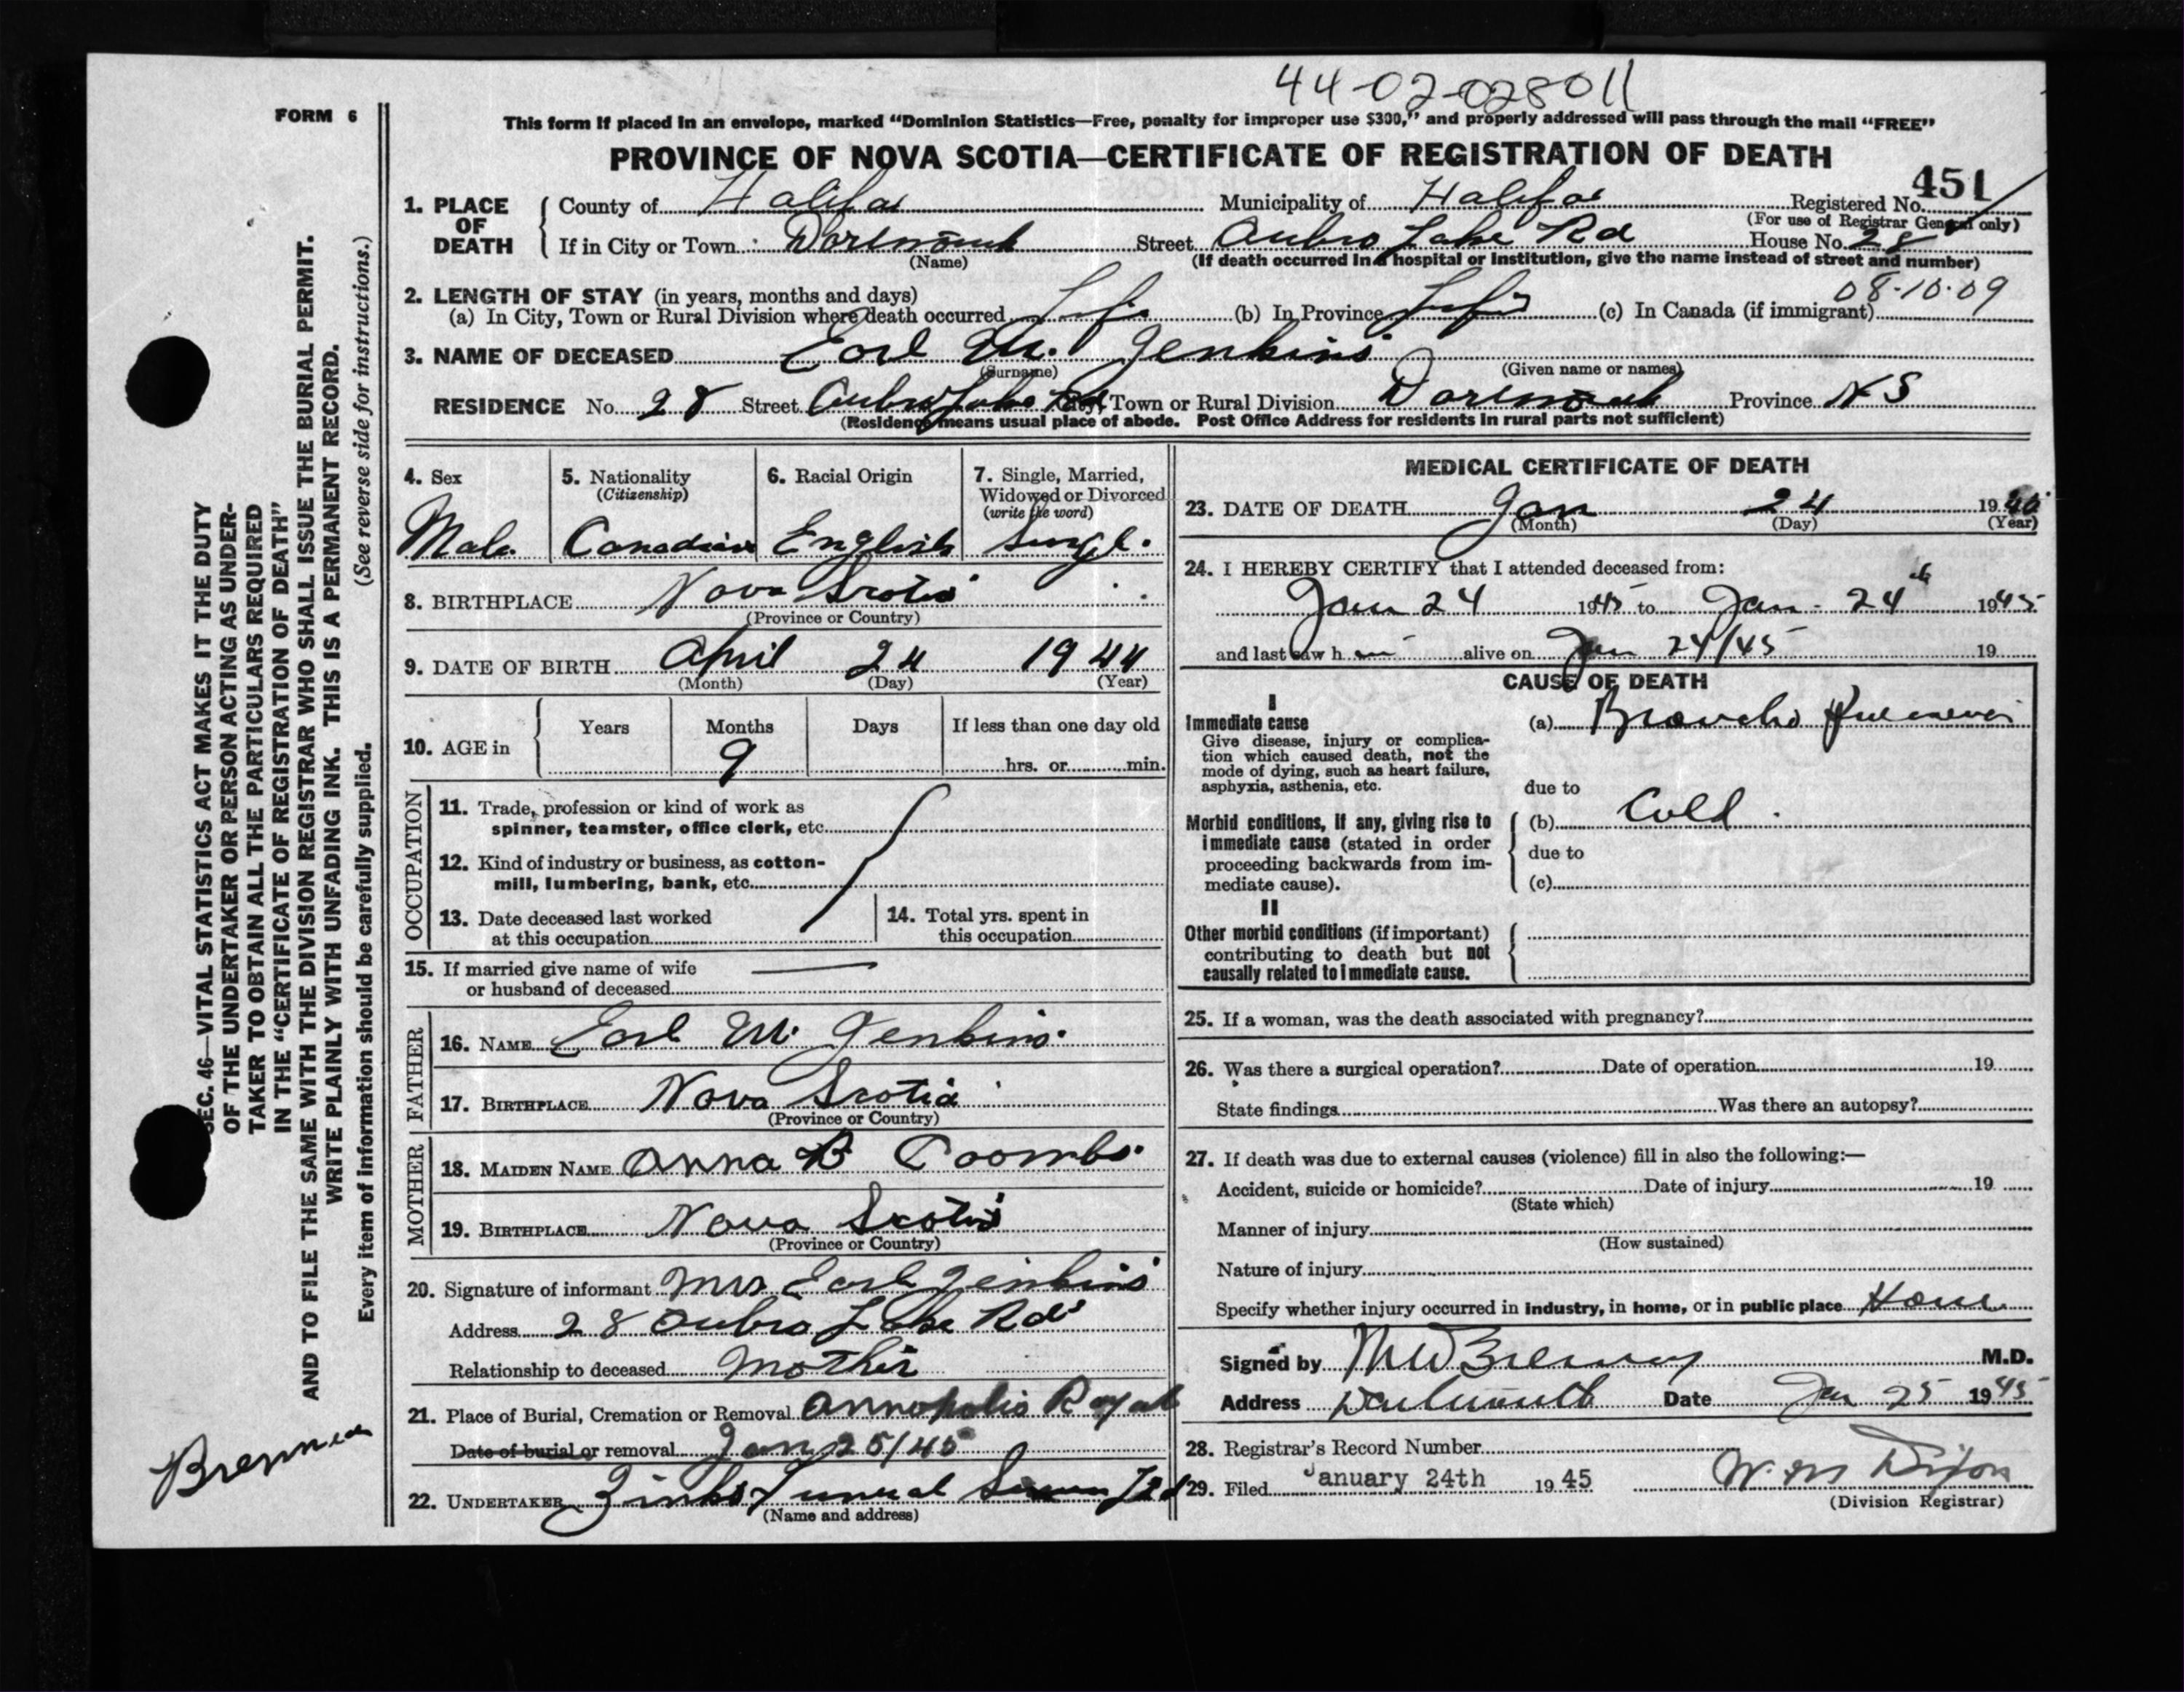 44-02-028011
FORM 6
This form if placed in an envelope, marked "Dominion Statistics—Free, penalty for improper use $300," and properly addressed will pass through the mail "FREE"
PROVINCE OF NOVA SCOTIA—CERTIFICATE OF REGISTRATION OF DEATH
451
1. PLACE OF DEATH
County of Halifax Municipality of Halifax Registered No.
(For use of Registrar General only)
If in City or Town Dartmouth Street Lake Rd House No. 28
(Name) (If death occurred in a hospital or institution, give the name instead of street and number)
2. LENGTH OF STAY (in years, months and days) 08-10-09
(a) In City, Town or Rural Division where death occurred Life (b) In Province Life (c) In Canada (if immigrant)
3. NAME OF DECEASED Earl M. Jenkins
(Surname) (Given name or names)
RESIDENCE No. 28 Street Lake Rd City, Town or Rural Division Dartmouth Province N S
(Residence means usual place of abode. Post Office Address for residents in rural parts not sufficient)
4. Sex
Male
5. Nationality
(Citizenship)
Canadian
6. Racial Origin
English
7. Single, Married,
Widowed or Divorced
(write the word)
Single.
8. BIRTHPLACE Nova Scotia
(Province or Country)
9. DATE OF BIRTH April 24 1944
(Month) (Day) (Year)
10. AGE in Years Months Days If less than one day old
9 hrs. or min.
OCCUPATION
11. Trade, profession or kind of work as
spinner, teamster, office clerk, etc.
12. Kind of industry or business, as cotton-
mill, lumbering, bank, etc.
13. Date deceased last worked
at this occupation
14. Total yrs. spent in
this occupation
15. If married give name of wife
or husband of deceased
FATHER
16. NAME Earl M. Jenkins
17. BIRTHPLACE Nova Scotia
(Province or Country)
MOTHER
18. MAIDEN NAME Anna B Coombs
19. BIRTHPLACE Nova Scotia
(Province or Country)
20. Signature of informant Mrs Earl Jenkins
Address 28 Lake Rd
Relationship to deceased Mother
21. Place of Burial, Cremation or Removal Annapolis Royal
Date of burial or removal Jan 25/45
22. UNDERTAKER Zinks Funeral Ltd
(Name and address)
MEDICAL CERTIFICATE OF DEATH
23. DATE OF DEATH Jan 24 19
(Month) (Day) (Year)
24. I HEREBY CERTIFY that I attended deceased from:
Jan 24 1945 to Jan - 24th 1945
and last saw h im alive on Jan 24/45 19
CAUSE OF DEATH
I
Immediate cause
Give disease, injury or complica-
tion which caused death, not the
mode of dying, such as heart failure,
asphyxia, asthenia, etc.
(a) Broncho Pneumonia
due to
Morbid conditions, if any, giving rise to
immediate cause (stated in order
proceeding backwards from im-
mediate cause).
(b) Cold.
due to
(c)
II
Other morbid conditions (if important)
contributing to death but not
causally related to immediate cause.
25. If a woman, was the death associated with pregnancy?
26. Was there a surgical operation? Date of operation 19
State findings Was there an autopsy?
27. If death was due to external causes (violence) fill in also the following:—
Accident, suicide or homicide? Date of injury 19
(State which)
Manner of injury
(How sustained)
Nature of injury
Specify whether injury occurred in industry, in home, or in public place Home
Signed by M W Brennan M.D.
Address Dartmouth Date Jan 25 1945
28. Registrar's Record Number
29. Filed January 24th 19 45 W. M Dixon
(Division Registrar)
SEC. 46—VITAL STATISTICS ACT MAKES IT THE DUTY
OF THE UNDERTAKER OR PERSON ACTING AS UNDER-
TAKER TO OBTAIN ALL THE PARTICULARS REQUIRED
IN THE "CERTIFICATE OF REGISTRATION OF DEATH"
AND TO FILE THE SAME WITH THE DIVISION REGISTRAR WHO SHALL ISSUE THE BURIAL PERMIT.
WRITE PLAINLY WITH UNFADING INK. THIS IS A PERMANENT RECORD.
Every item of information should be carefully supplied. (See reverse side for instructions.)
Brennan